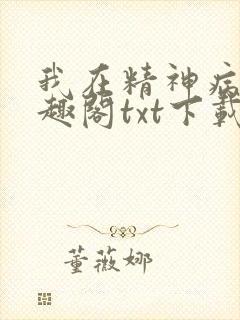 我在精神病
趣阁txt下载
董薇娜